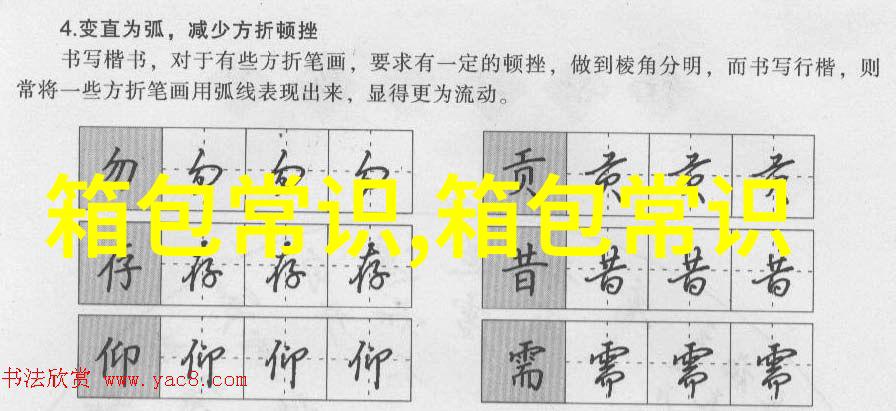 4.变直为弧，减少方折顿挫
书写楷书，对于有些方折笔画，要求有一定的顿挫，做到棱角分明，而书写行楷，则
常将一些方折笔画用弧线表现出来，显得更为流动。
贡 贡 贡 贡
箱包常识,箱包常识
存 存 存 存 昔 昔 昔 昔
仰 仰 仰 仰 需 需 需 需
书法欣赏 www.yac8.com